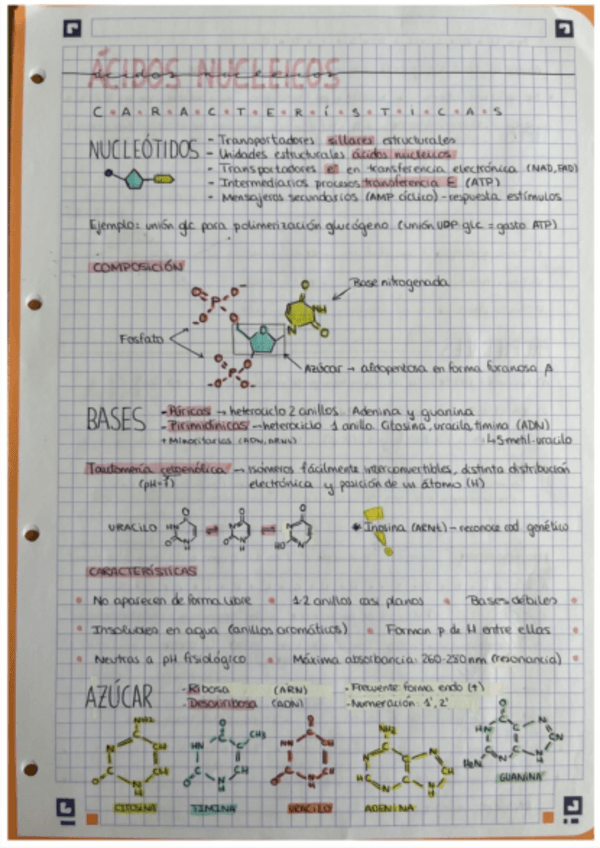 ÁCIDOS NUCLEICOS
ácidos nucleicos
C • A • R • A • C • T • E • R • Í • S • T • I • C • A • S
NUCLEÓTIDOS
- Transportadores sillares estructurales
- Unidades estructurales ácidos nucleicos
- Transportadores e⁻ en transferencia electrónica (NAD, FAD)
- Intermediarios procesos transferencia E (ATP)
- Mensajeros secundarios (AMP cíclico) - respuesta estímulos
Ejemplo: unión glc para polimerización glucógeno (unión UDP glc = gasto ATP)
COMPOSICIÓN
Base nitrogenada
Fosfato
Azúcar → aldopentosa en forma furanosa β
BASES
- Púricas → heterociclo 2 anillos. Adenina y guanina
- Pirimidínicas → heterociclo 1 anillo. Citosina, uracilo, timina (ADN)
+ Minoritarias (ADN, ARNt)
↳ 5 metil-uracilo
Tautomería cetoenólica → isómeros fácilmente interconvertibles, distinta distribución
(pH=7) electrónica y posición de un átomo (H)
URACILO
* Inosina (ARNt) - reconoce cod. genético
CARACTERÍSTICAS
• No aparecen de forma libre • 1-2 anillos casi planos • Bases débiles •
• Insolubles en agua (anillos aromáticos) • Forman p de H entre ellas •
• Neutras a pH fisiológico • Máxima absorbancia: 260-280 nm (resonancia) •
AZÚCAR
- Ribosa (ARN)
- Desoxirribosa (ADN)
- Frecuente: forma endo (+)
- Numeración: 1', 2'
CITOSINA
TIMINA
URACILO
ADENINA
GUANINA